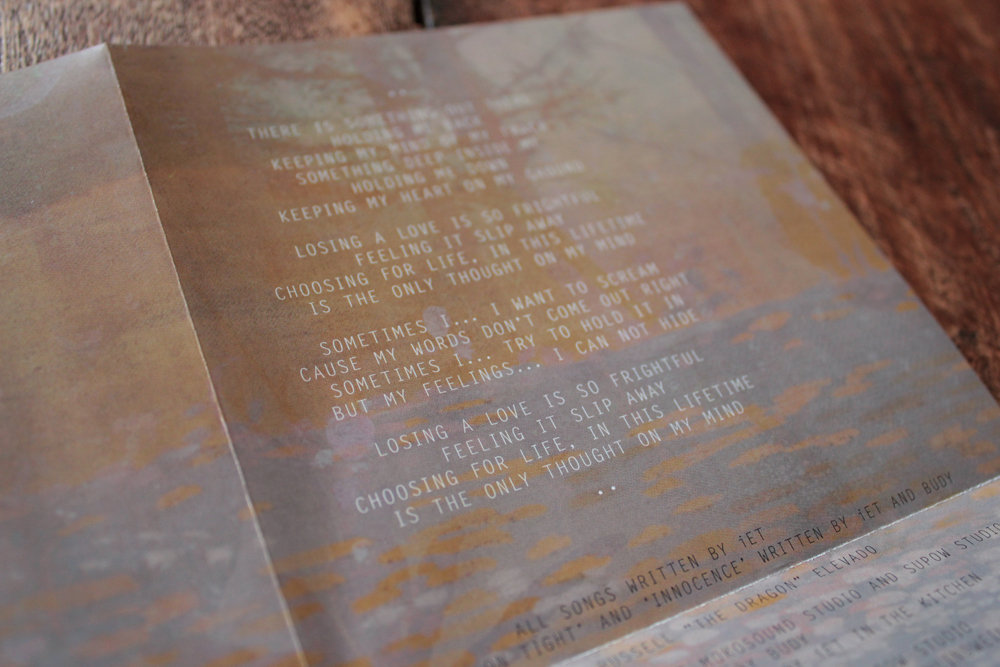 ..
THERE IS SOMETHING OUT THERE
HOLDING MY BACK
KEEPING MY MIND ON MY TRACK
SOMETHING DEEP INSIDE ME
HOLDING ME DOWN
KEEPING MY HEART ON MY GROUND
LOSING A LOVE IS SO FRIGHTFUL
FEELING IT SLIP AWAY
CHOOSING FOR LIFE, IN THIS LIFETIME
IS THE ONLY THOUGHT ON MY MIND
SOMETIMES I... I WANT TO SCREAM
CAUSE MY WORDS DON'T COME OUT RIGHT
SOMETIMES I... TRY TO HOLD IT IN
BUT MY FEELINGS... I CAN NOT HIDE
LOSING A LOVE IS SO FRIGHTFUL
FEELING IT SLIP AWAY
CHOOSING FOR LIFE, IN THIS LIFETIME
IS THE ONLY THOUGHT ON MY MIND
..
ALL SONGS WRITTEN BY iET
ON TIGHT' AND 'INNOCENCE' WRITTEN BY iET AND BUDY
RUSSELL "THE DRAGON" ELEVADO
SOUND STUDIO AND SUPOW STUDIO
BUDY iET IN THE KITCHEN
STUDIO